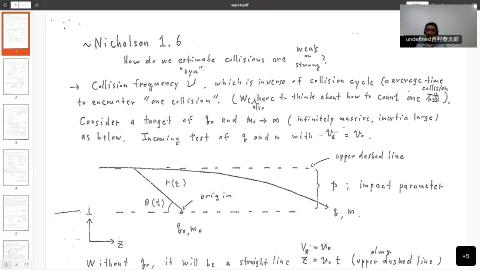 sep16.pdf
~ Nicholson 1.6
How do we estimate collisions are weak or strong?
"sys"
→ Collision frequency ν, which is inverse of collision cycle (average time
to encounter "one collision". (We have to think about how to count one collision).
also
Consider a target of q₀ and m₀ → ∞ (infinitely massive, inertia large)
as below. Incoming test of q and m with = v₀.
upper dashed line
r(t)
p ; impact parameter
θ(t)
origin
q, m.
q₀, m₀
z
Without q₀, it will be a straight line z = v₀t (upper dashed line)
along
+5